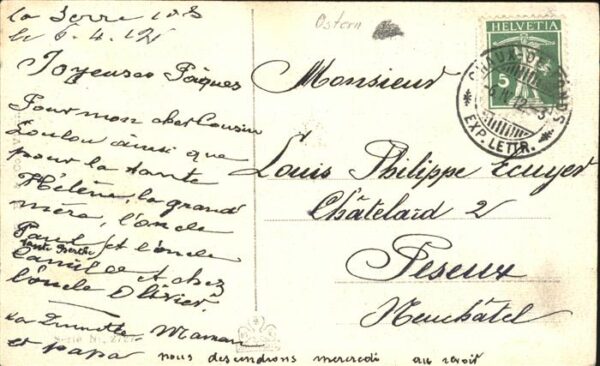 la Serre 108
le 6-4.12
Joyeuses Pâques
Pour mon cher Cousin
Loulou ainsi que
pour la tante
Hélène, la grand
mère, l'oncle
Paul et l'oncle
tante Berthe
Camille et chez
l'oncle Olivier.
La Maman
et papa
nous descendrons mercredi au revoir
Ostern
Monsieur
Louis Philippe Ecuyer
Châtelard 2
Peseux
Neuchâtel
HELVETIA
5
CHAUX-DE-FONDS
EXP. LETTR.
Serie Nr.